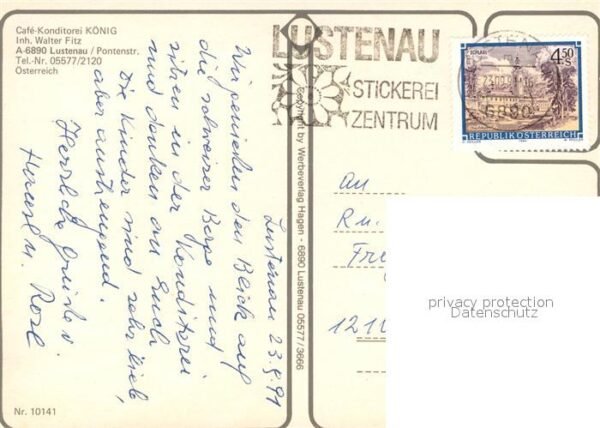 Café-Konditorei KÖNIG
Inh. Walter Fitz
A-6890 Lustenau / Pontenstr.
Tel.-Nr. 05577/2120
Österreich
Lustenau 23.
Wir genießen den Blick auf
die schweizer Berge und
sitzen in der Konditorei
und denken an Euch
Die Kinder sind sehr lieb,
aber anstrengend.
Herzliche Grüße
u. Rosl
Nr. 10141
Copyright by Werbeverlag Hagen - 6890 Lustenau 05577/3666
LUSTENAU
STICKEREI
ZENTRUM
6890
4.50
S
REPUBLIK ÖSTERREICH
An
Ru.
Fre
121
privacy protection
Datenschutz